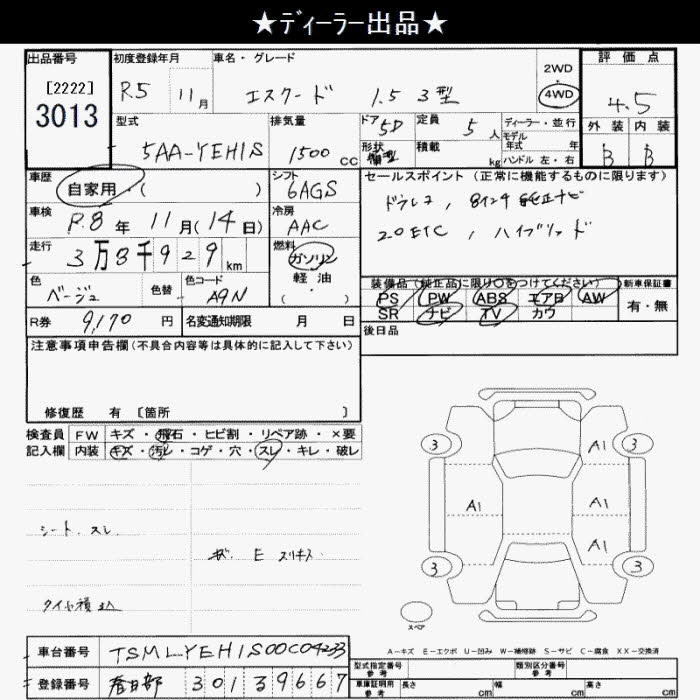 ★ディーラー出品★
出品番号 初度登録年月 車名・グレード 評価点
[2222] R5 11月 エスクード 1.5 3型 2WD 4WD 4.5
3013
型式 排気量 ドア 5D 定員 5人 ディーラー・並行 外装 内装
モデル年式 年
5AA-YEH1S 1500cc 形状 箱型 積載 kg ハンドル 左・右 B B
車歴 シフト セールスポイント (正常に機能するものに限ります)
自家用・( ) 6AGS ドラレコ, 8インチ純正ナビ
車検 R.8年 11月(14日) 冷房 AAC 2.0ETC, ハイブリッド
走行 3万8千929km 燃料 ガソリン
軽油
・( )
色 ベージュ 色替 色コード A9N 装備品(純正品に限り○をつけてください) 新車保証書
PS PW ABS エアB AW 有・無
SR ナビ TV カワ
R券 9,170円 名変通知期限 月 日 後日品
注意事項申告欄(不具合内容等は具体的に記入して下さい)
修復歴 有 [箇所 ]
検査員 FW キズ・飛石・ヒビ割・リペア跡・×要
記入欄 内装 キズ・汚レ・コゲ・穴・スレ・キレ・破レ
3 A1 3
A1 A1
シート.スレ
A1
E スリキズ
3 3
タイヤ積込
スペア
A-キズ E-エクボ U-凹み W-補修跡 S-サビ C-腐食 XX-交換済
車台番号 TSMLYEH1S00C04233 型式指定番号 参考 類別区分番号 参考
登録番号 春日部 301 39667 車庫証明用 参考 長さ cm 幅 cm 高さ cm